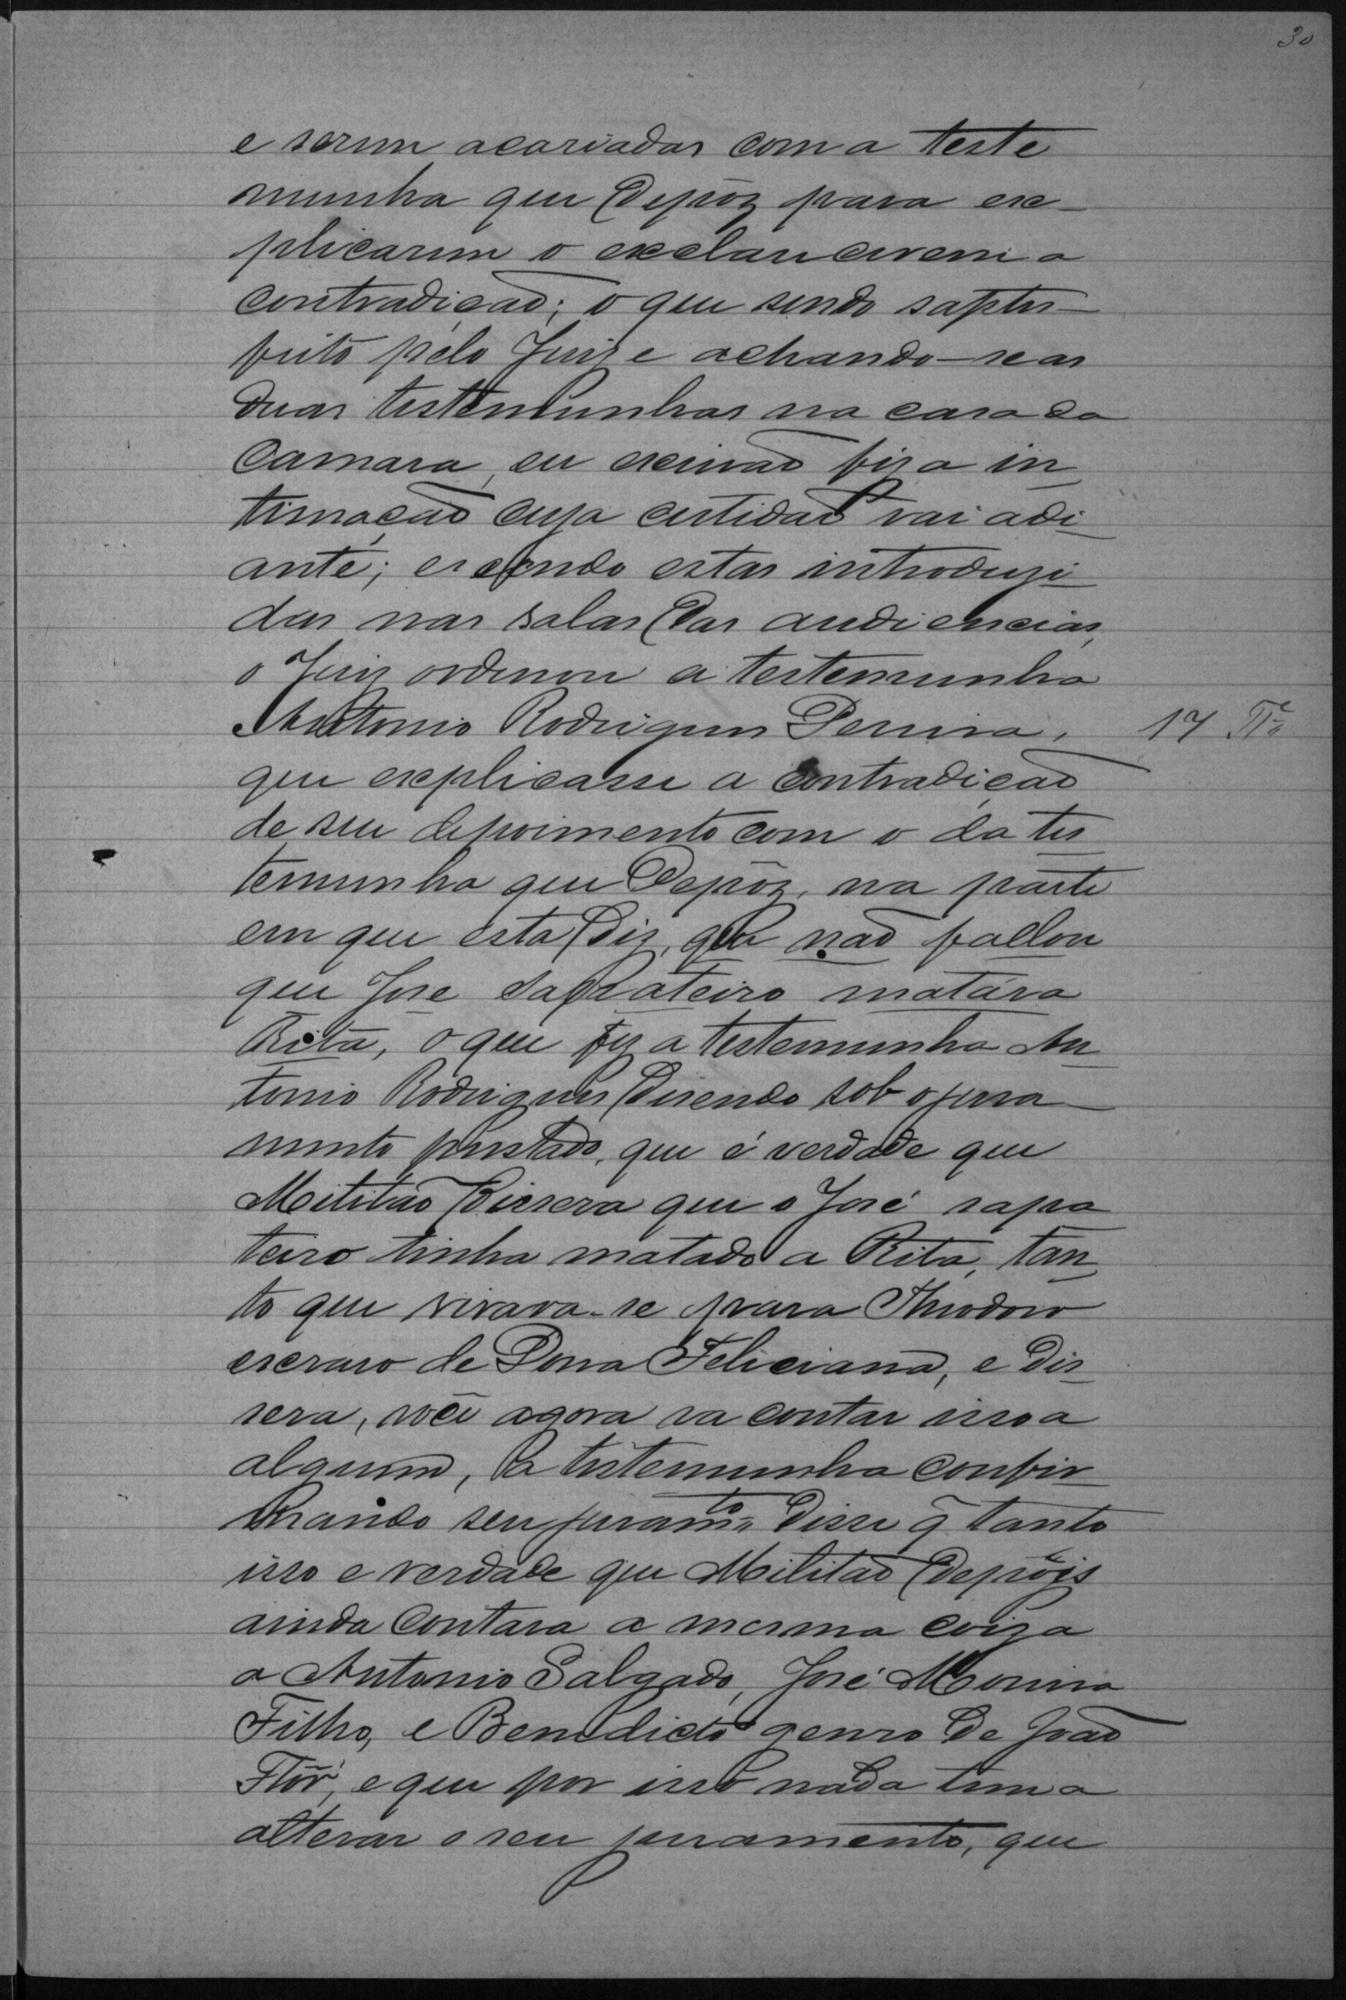 30
e serem acariadas com a teste
munha que depôz para ex-
plicarem e exclarecerem a
contradicção; o que sendo saptis-
feito pelo Juiz e achando-se as
duas testemunhas na casa da
Camara, eu escrivão fiz a in
timação cuja certidão vai adi
ante; e sendo estas introduzi
das nas salas das audiencias,
o Juiz ordenou a testemunha
Antonio Rodrigues Pereira, 17 Tª
que explicasse a contradicão
de seu depoimento com o da tes
temunha que depôz, na parte
em que esta diz, que não fallou
que José Sapateiro matára
Rita, o que fez a testemunha An
tonio Rodrigues disendo sob o jura-
mento prestado, que é verdade que
Militão dissera que o José sapa
teiro tinha matado a Rita, tan
to que virava-se para Theodoro
escravo de Dona Feliciana, e dis
sera, você agora va contar isso a
alguem, e a testemunha confir
mando seu juramto disse q̃ tanto
isso e verdade que Militão depois
ainda contara a mesma coiza
a Antonio Salgado, José Moreira
Filho, e Benedicto genro de João
Flôr, e que por isso nada tem a
alterar o seu juramento, que